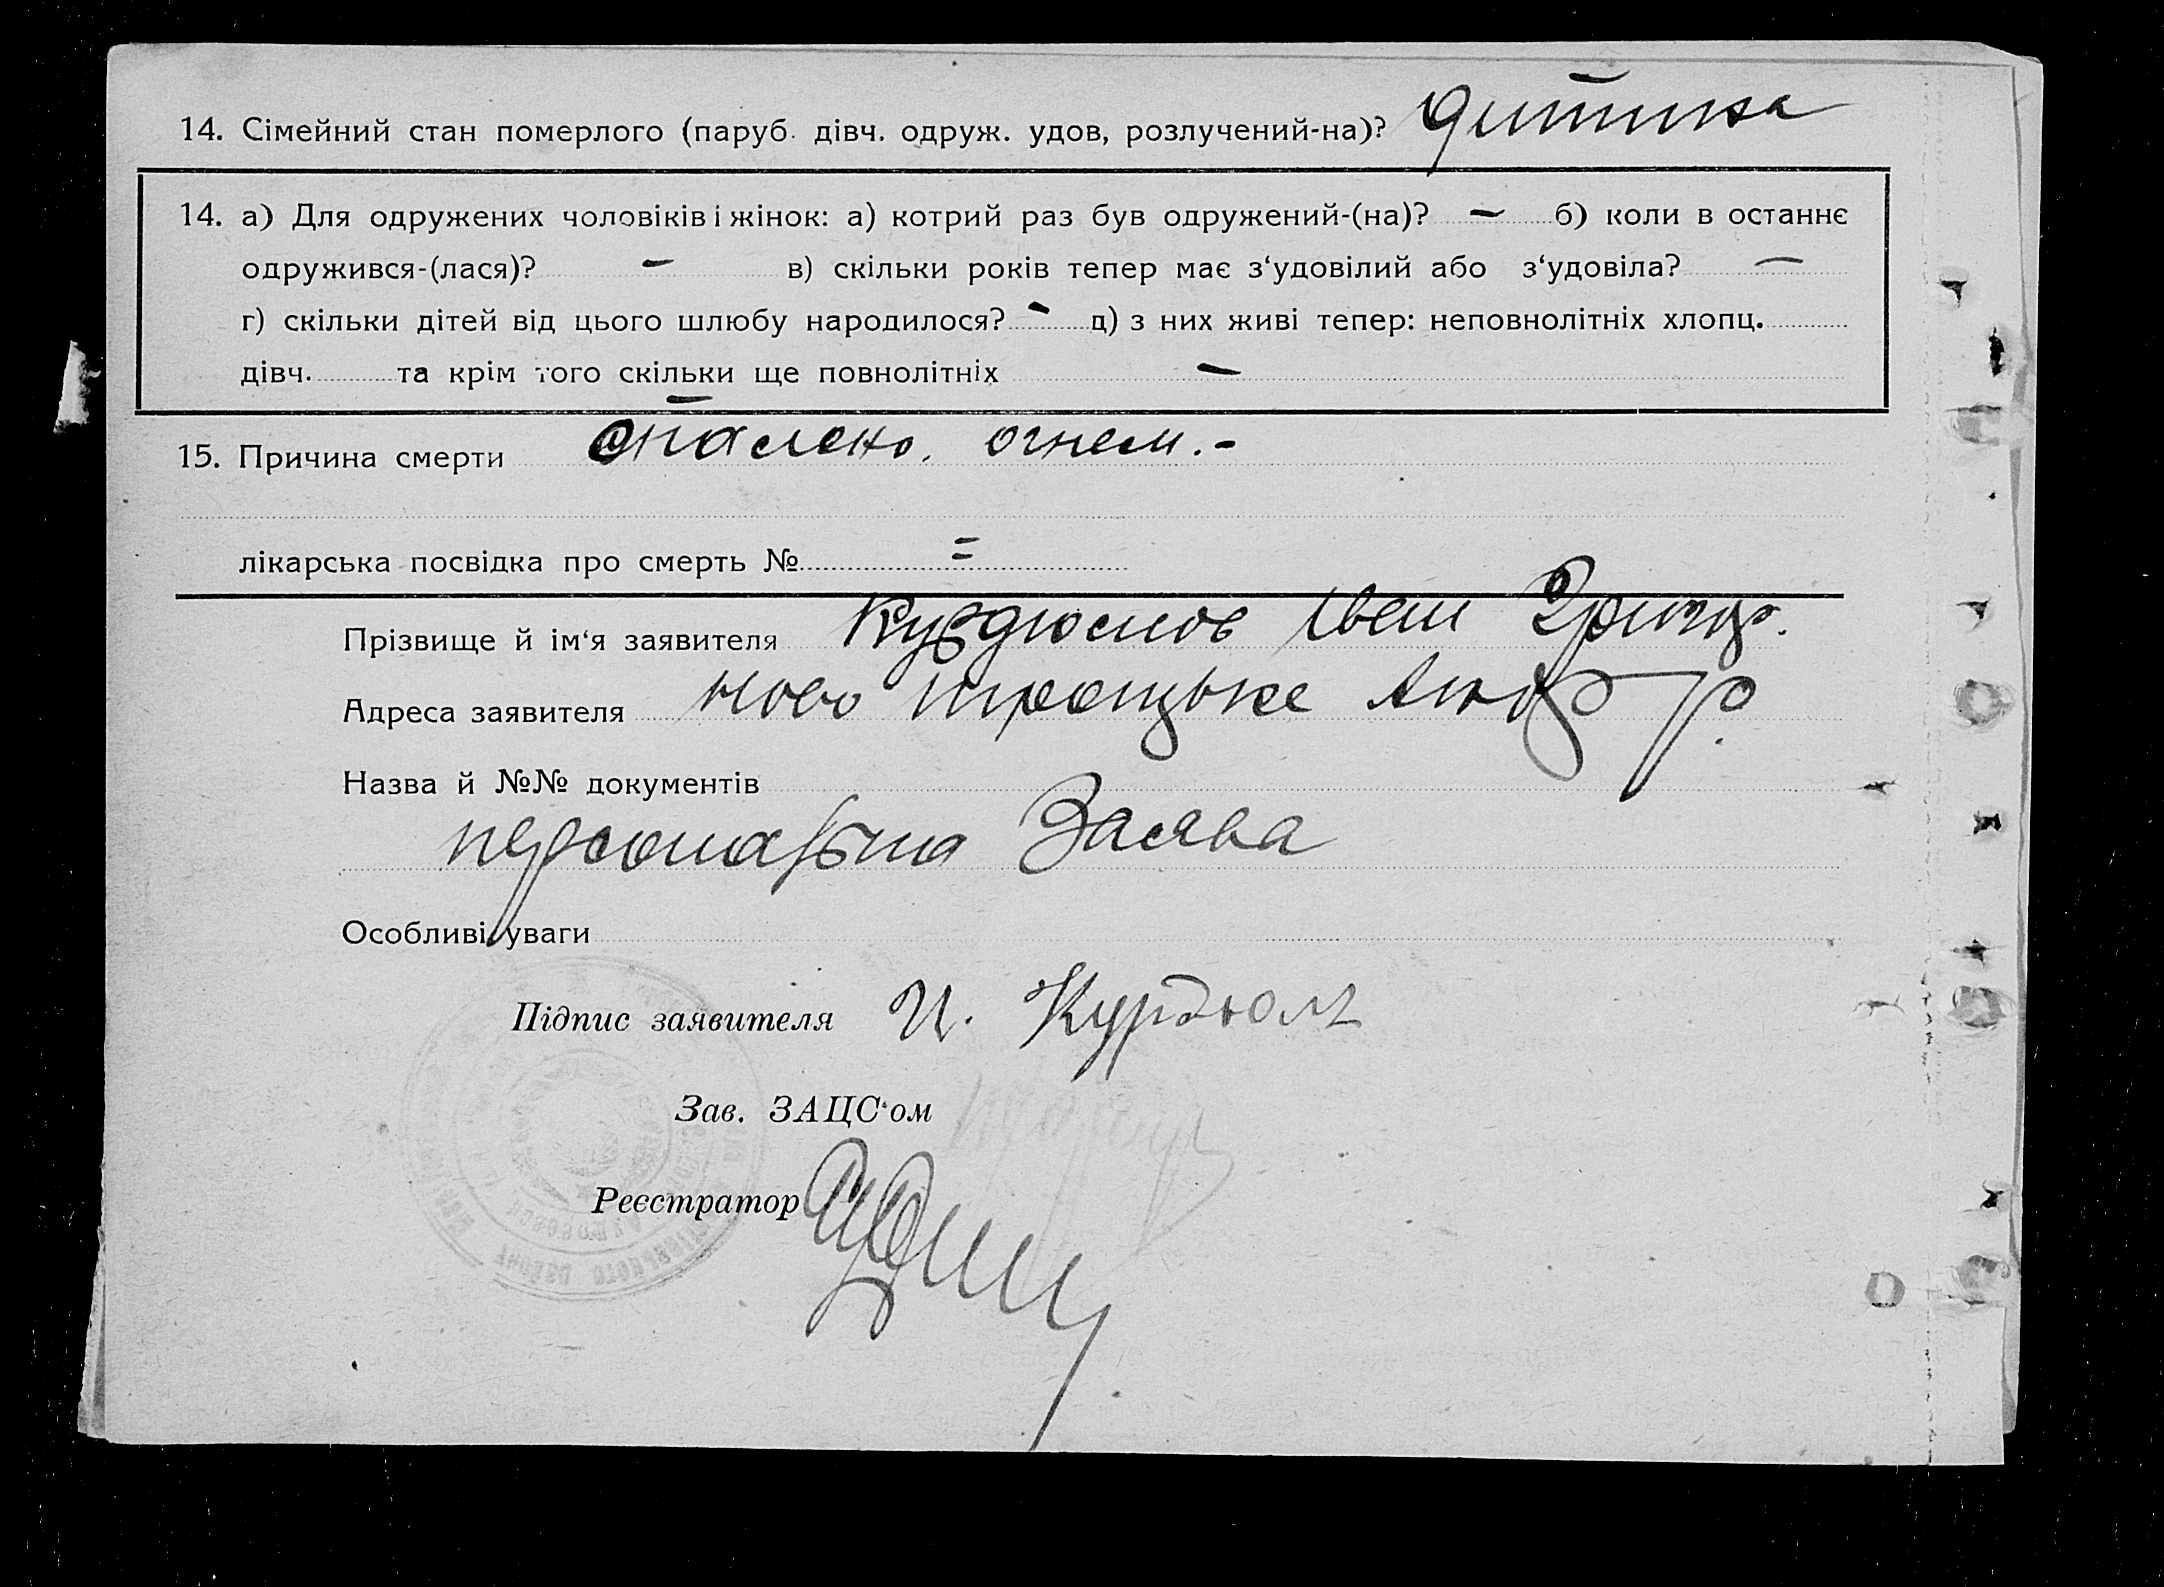 14. Сімейний стан померлого (паруб. дівч. одруж. удов, розлучений-на)? дитина
14. а) Для одружених чоловіків і жінок: а) котрий раз був одружений-(на)? — б) коли в останнє
одружився-(лася)? — в) скільки років тепер має з‘удовілий або з‘удовіла? —
г) скільки дітей від цього шлюбу народилося? - д) з них живі тепер: неповнолітніх хлопц.
дівч. та крім того скільки ще повнолітніх —
15. Причина смерти опалено огнем.-
лікарська посвідка про смерть № =
Прізвище й ім‘я заявителя Курдюмов Іван Григор.
Адреса заявителя Ново троицьке р.
Назва й №№ документів
персональна Заява
Особливі уваги
Підпис заявителя И. Курдюм
Зав. ЗАЦС‘ом
Реєстратор